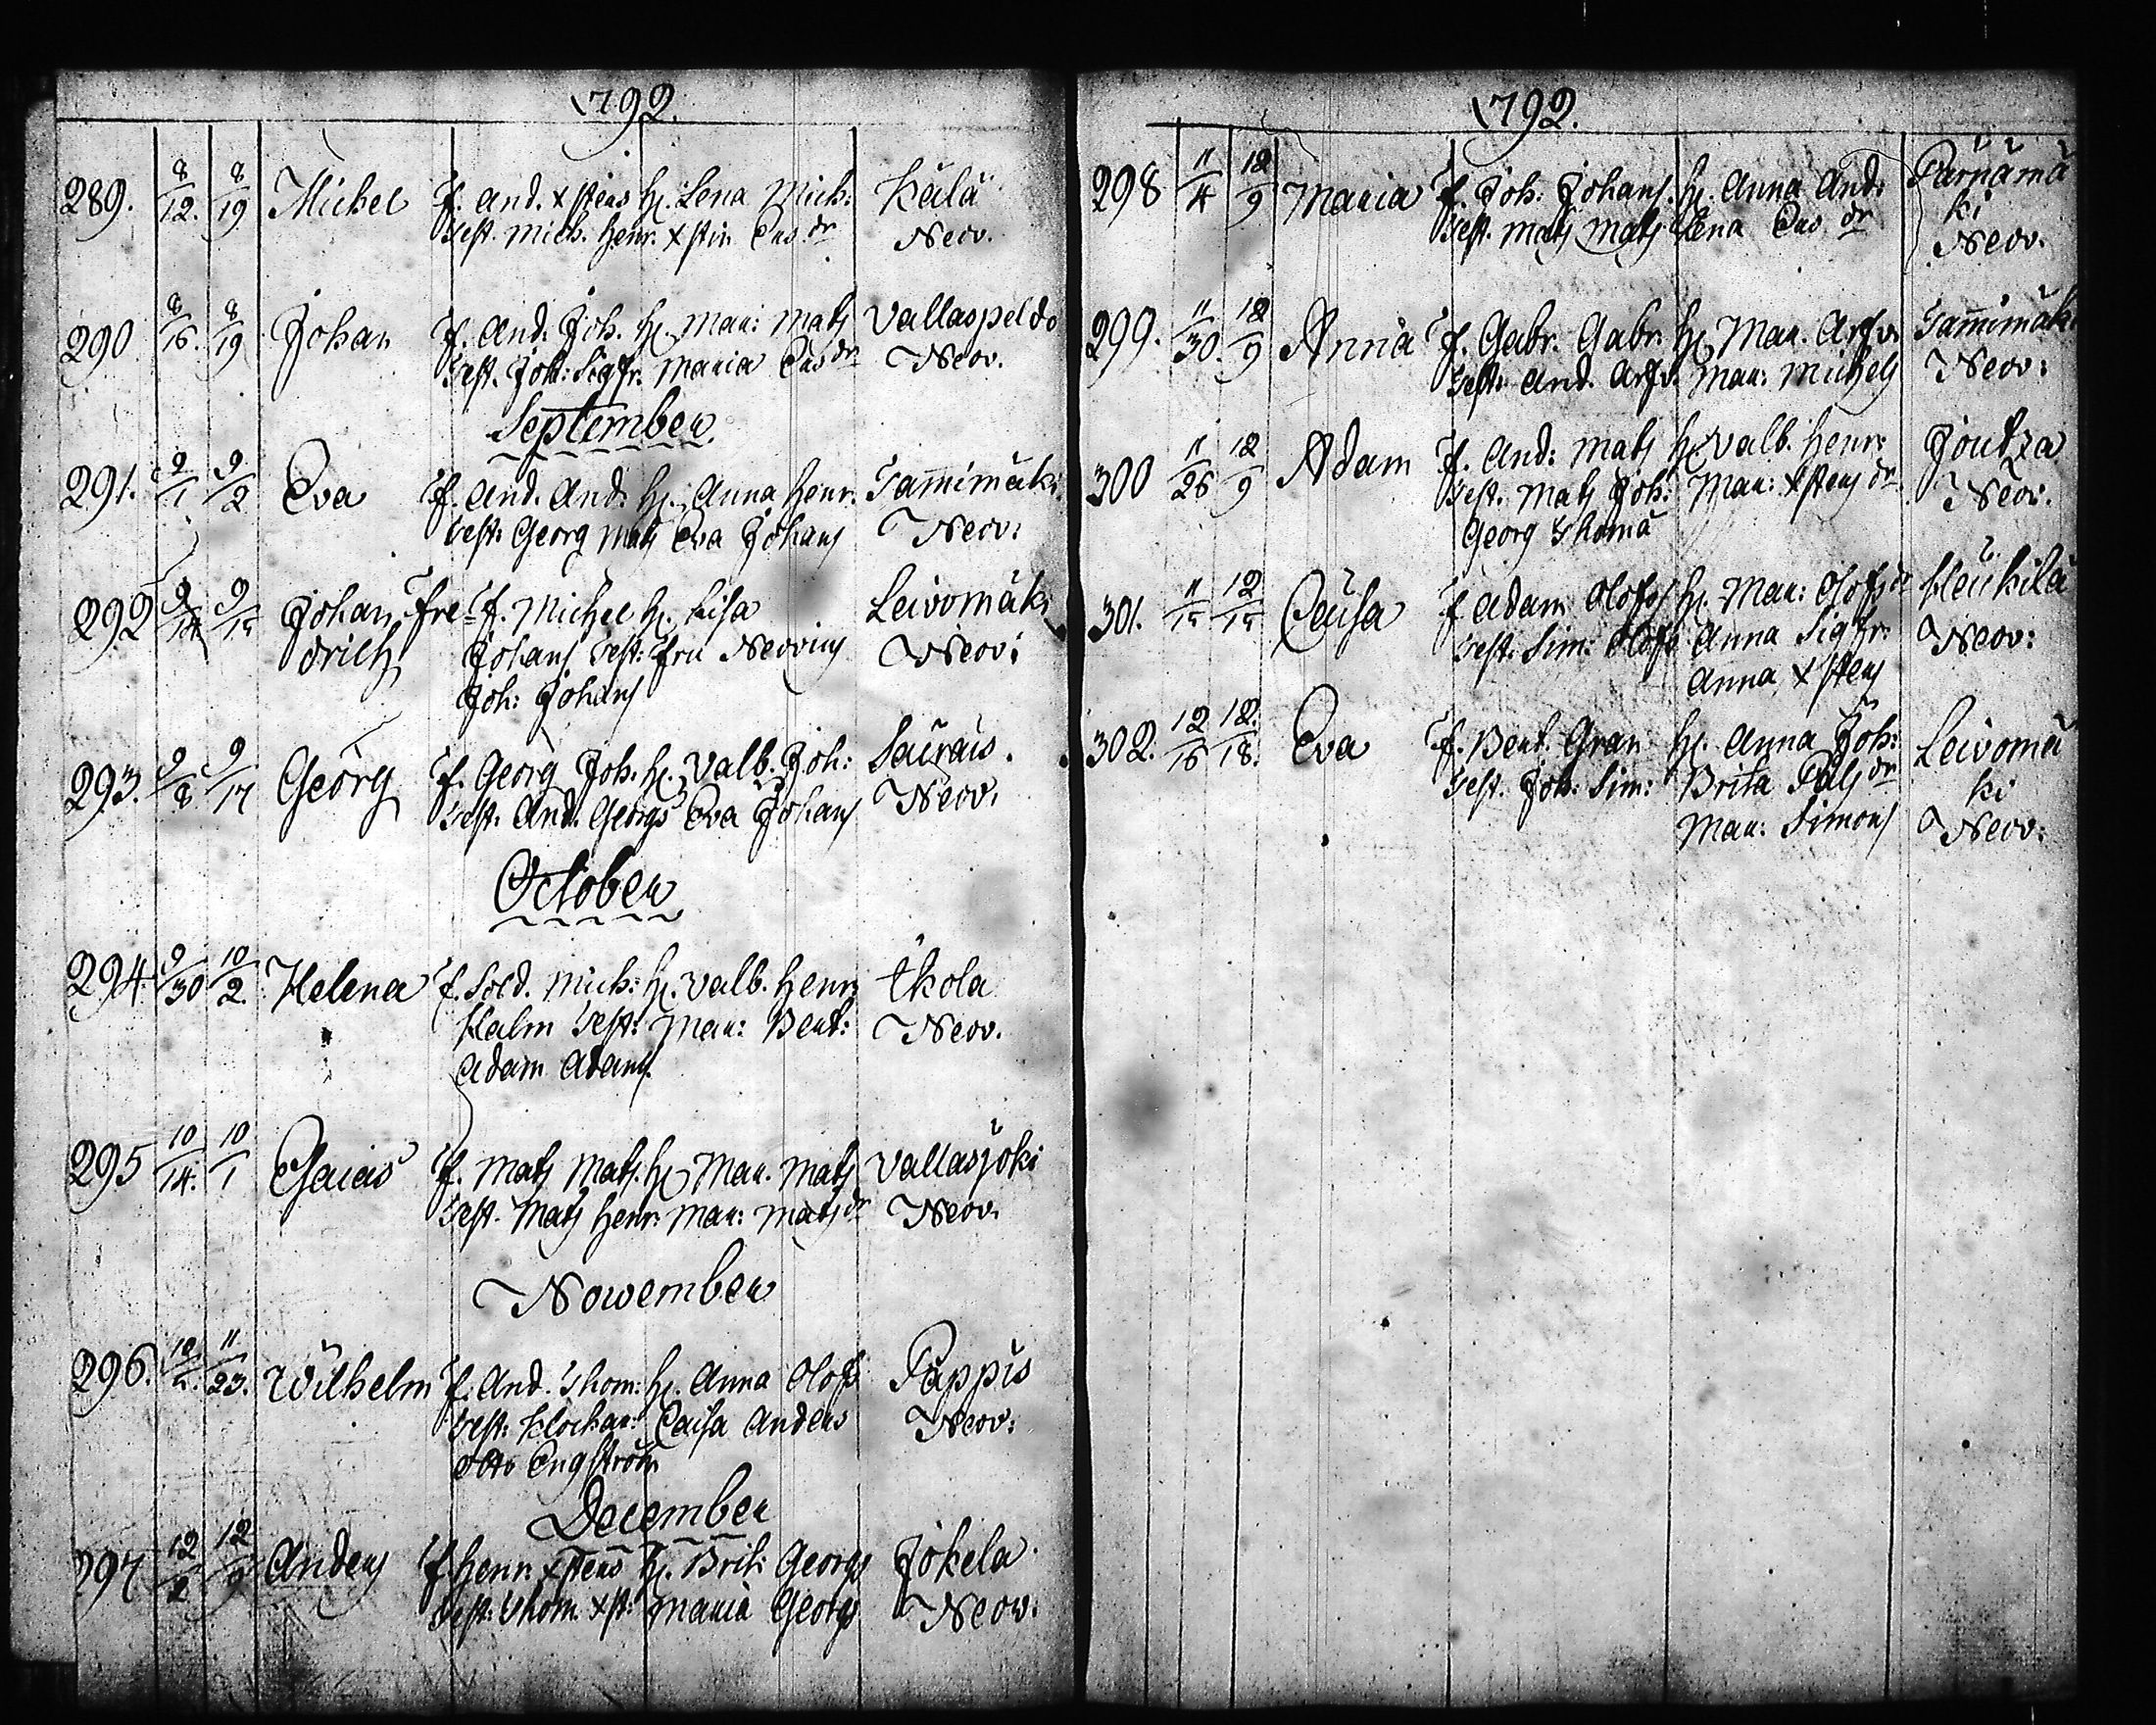 1792.
289. 8/12. 8/19 Michel f. And. Xstens H. Lena Mich: Kälä
Test. Mich. Henr. Xstin Eas. dr Neov.
290 8/16. 8/19 Johan f. And. Joh. H. Mar: Mats Vallaspeldo
Test. Joh: Sigfr. Maria Eas dr Neov.
September.
291. 9/1 9/2 Eva f. And. And. H. Anna Henr. Tam̄imäki
Test: Georg Mats Eva Johans Neov:
292 9/14 9/15 Johan Fre- f. Michel H. Lisa Leivomäki
drich Johans Test: Fru Neovius Neov:
Joh: Johans
293. 9/8 9/17 Georg f. Georg Joh. H. Valb. Joh:
Test. And. Georgs Eva Johans Neov.
October
294. 9/30 10/2. Helena f. Sold. Mich: H. Valb. Henr: Ikola
Halm Test: Mar: Bent: Neov.
Adam Adams.
295 10/14. 10/1 f. Mats Mats. H. Mar. Mats Vallasjoki
Test. Mats Henr: Mar: Mats dr Neov.
November
296. 11/23. Wilhelm f. And. Thom: H. Anna Olofs Pappis
Test: Klockar: Caisa Anders Neov:
Otto Engström
December
297 12/2 12/9 Anders f. Henr. Xstens H. Brit: Georgs Jokela
Test: Thom. Xst: Maria Georgs Neov.
1792.
298 11/4 12/9 Maria f. Joh: Johans. H. Anna And: Pärnämä
Test. Mats Mats Lena Eas dr ki
Neov.
299. 11/30. 12/9 Anna f. Gabr. Gabr. H. Mar. Arfv. Tam̄imäki
Test: And. Arfv. Mar: Michels Neov:
300 11/26 12/9 Adam f. And: Mats H. Valb. Henr: Joutza
Test. Mats Joh: Mar: Xstens dr Neov.
Georg Thomä
301. 11/15 12/15 Caisa f. Adam Olofs H. Mar: Olofs dr Heikilä
Test. Sim: Olofs Anna Sigfr: Neov:
Anna Xstens
302. 12/16 12/18. Eva f. Bent. Gran H. Anna Joh: Leivomä
Test. Joh: Sim: Brita Påls dr ki
Mar: Simons Neov: